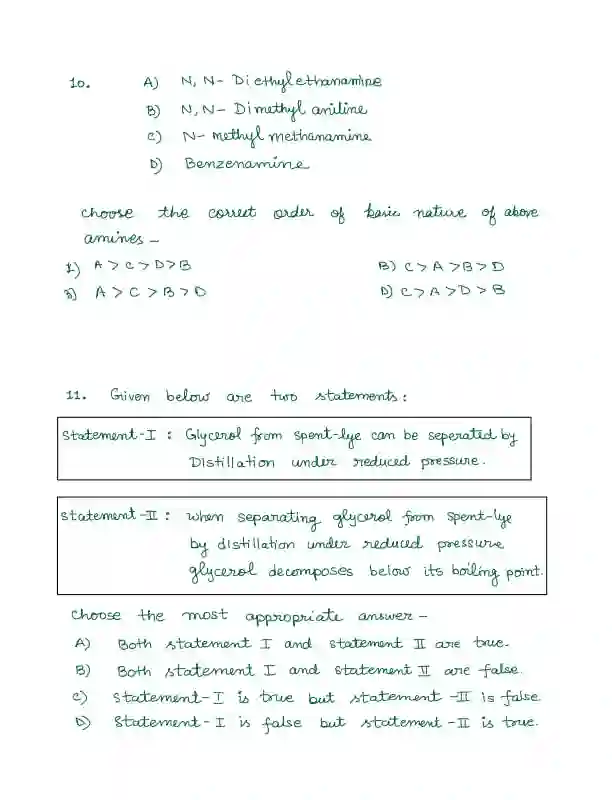 10. A) N, N- Diethylethanamine
B) N, N- Dimethyl aniline
C) N- methyl methanamine
D) Benzenamine
choose the correct order of basic nature of above
amines -
1) A > C > D > B B) C > A > B > D
3) A > C > B > D D) C > A > D > B
11. Given below are two statements :
Statement-I : Glycerol from spent-lye can be seperated by
Distillation under reduced pressure.
Statement-II : when separating glycerol from spent-lye
by distillation under reduced pressure
glycerol decomposes below its boiling point.
choose the most appropriate answer -
A) Both statement I and statement II are true.
B) Both statement I and statement II are false.
C) Statement-I is true but statement -II is false
D) Statement-I is false but statement -II is true.